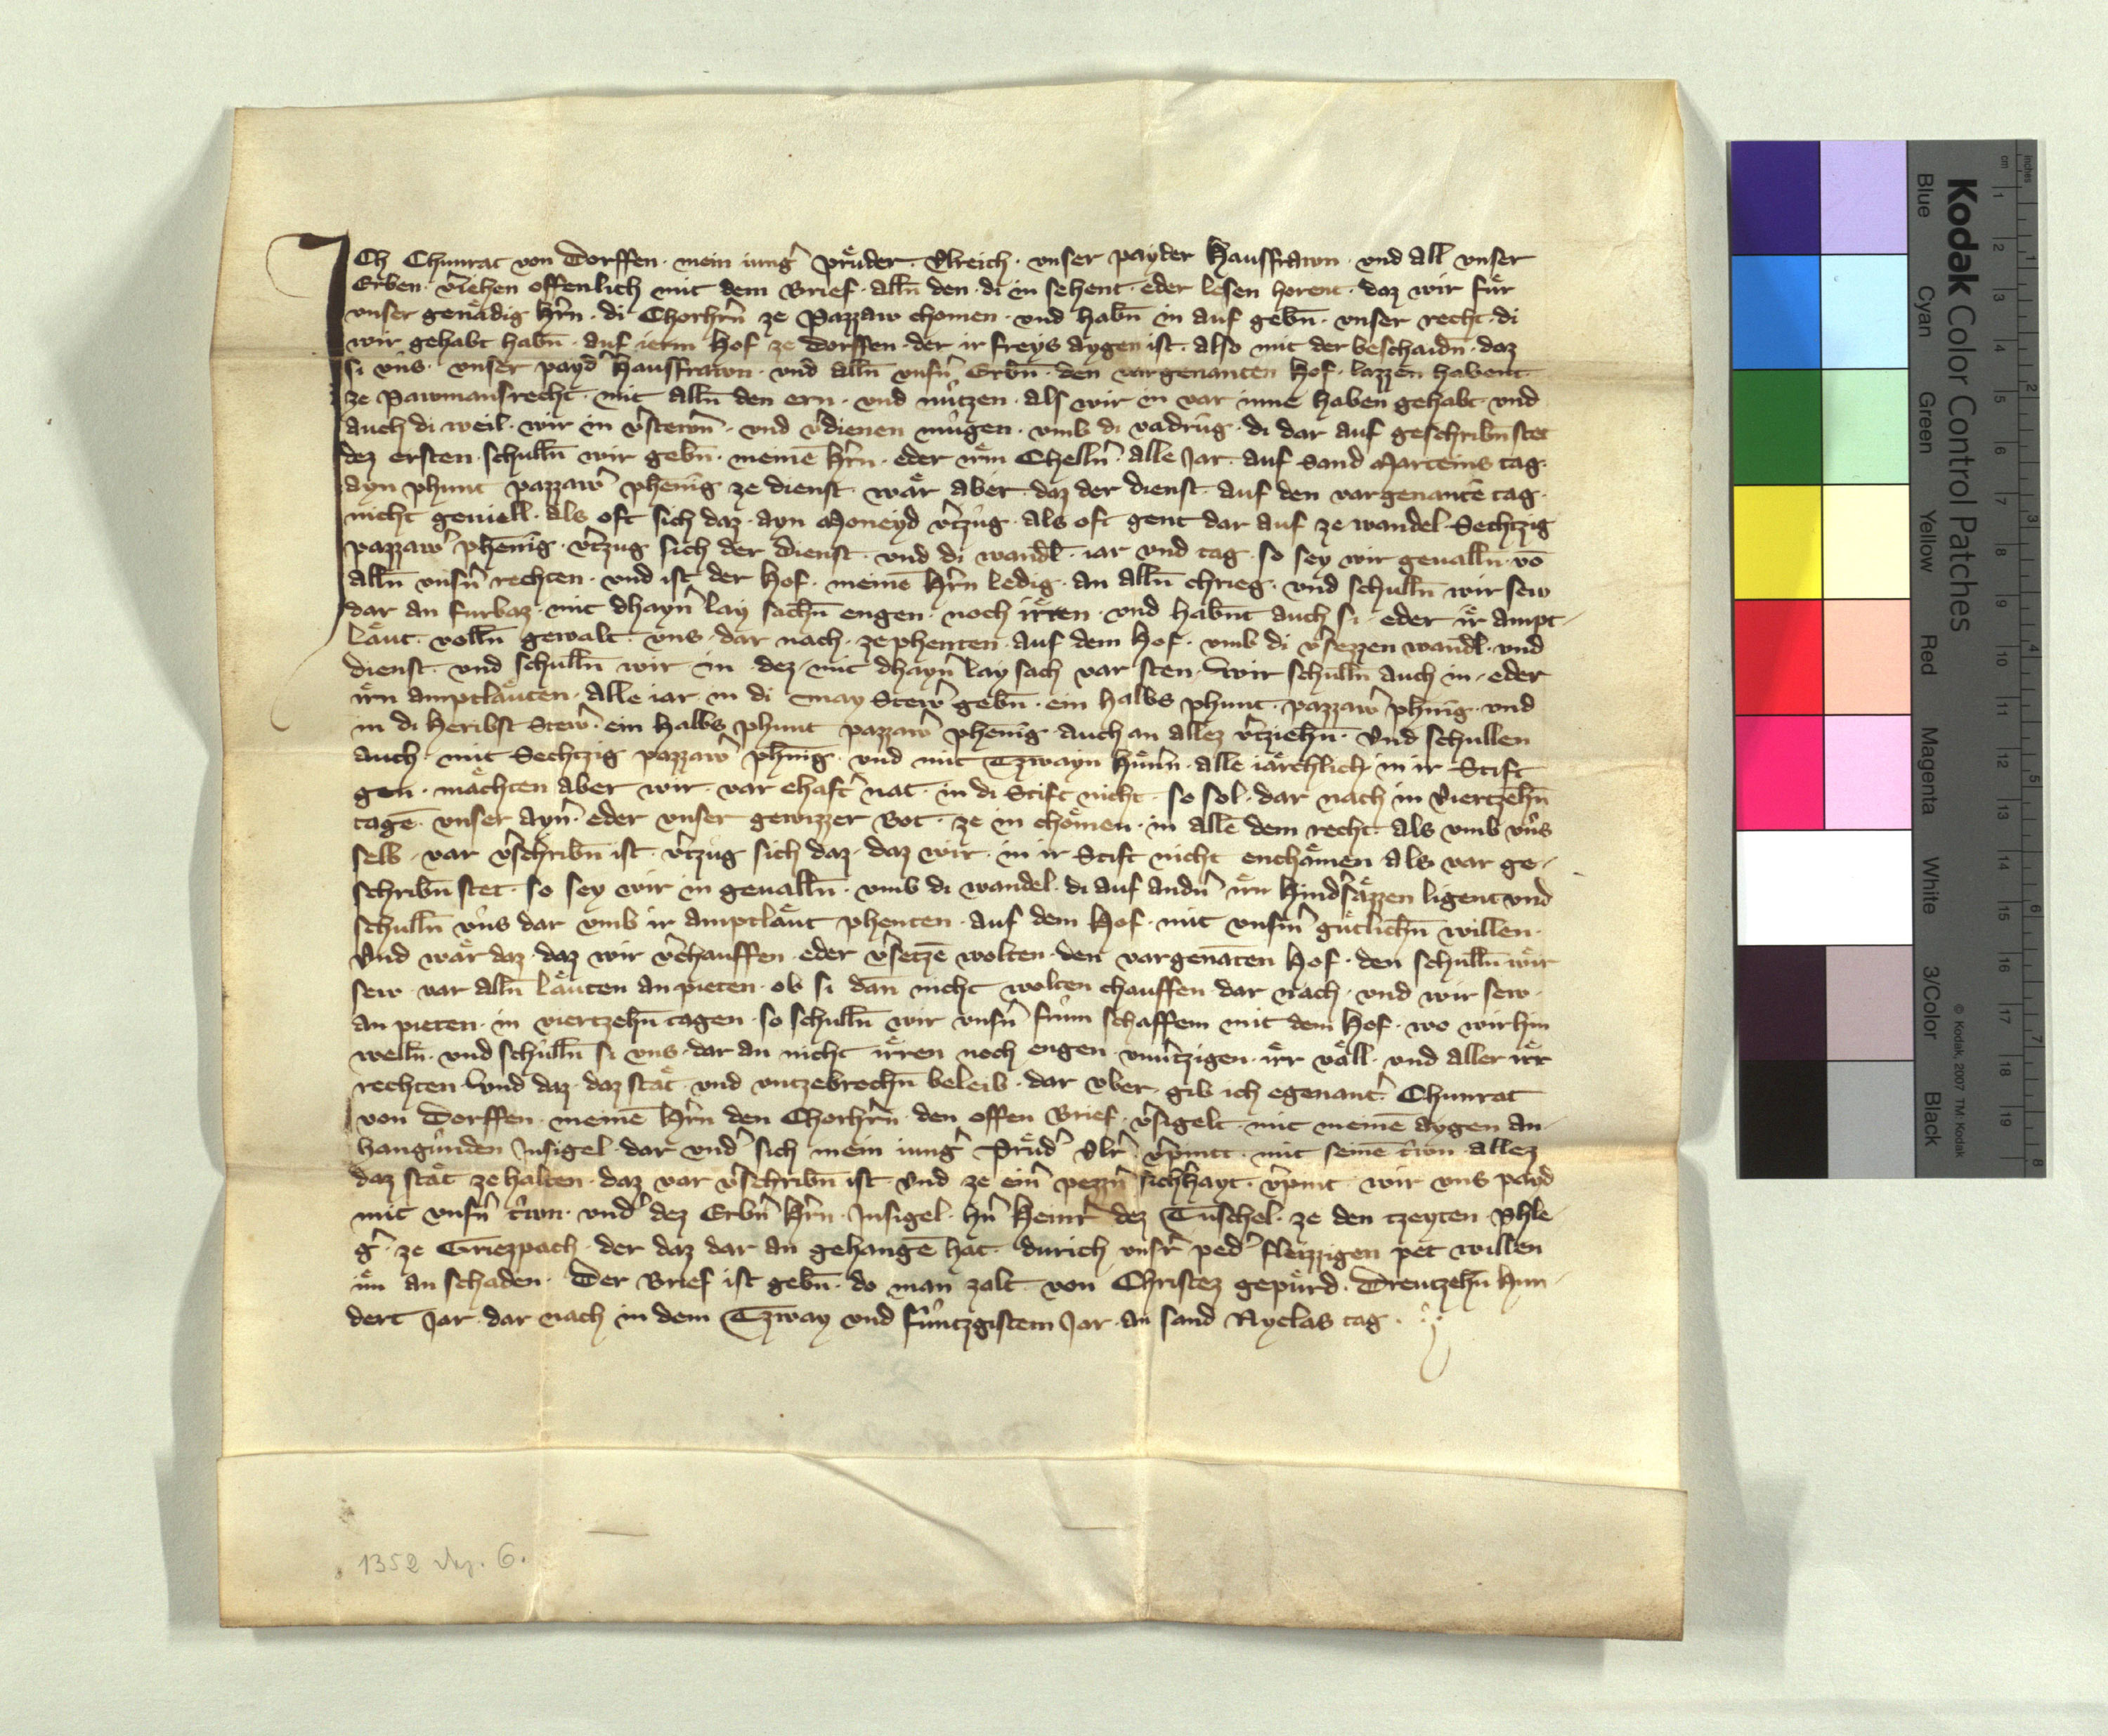 ICh Chunrat von Dorffen · mein iung᷑ pru᷑der · Vlreich · vnser payder Hausfrawn · vnd all vnser
Erben · v᷑iehen offenlich mit dem Brief · alln̄ den · di in sehent · eder lesen horent · daz wir fu᷑r
vnser genädig h᷑rn · di Chorh᷑rn ze Pazzaw chomen · vnd habn̄ in auf gebn̄ · vnser recht · di
wir gehabt habn̄ · auf ierm Hof ze dorffen · der ir freys aygen ist · also mit der beschaidn̄ · daz
si vns · vnser payd᷑ Hausfrawn · vnd alln̄ vnsn᷑ Erbn̄ · den vargenanten Hof · lazzen habent ·
ze Pawmansrecht · mit alln̄ den ern · vnd nützen · als wir in var inne haben gehabt · vnd
auch di weil · wir in v᷑stewrn̄ · vnd v᷑dienen mügen · vmb di vadrūg · di dar auf geschribn̄ stet
dez ersten · schulln̄ wir gebn̄ · meinē h᷑rn · eder irm̄ Chelln᷑ · alle Jar · auf Sand Marteins tag ·
ayn phunt pazzaw᷑ phenīg ze dienst · wär aber · daz der dienst · auf den vargenantē tag ·
nicht geuiell · als oft sich daz · ayn Moneyd v᷑tzug · als oft gent dar auf ze wandel · Sechtzig
pazzaw᷑ phenīg · v᷑tzug sich der dienst · vnd di wandl · iar vnd tag · so sey wir geualln̄ · vō
alln̄ vnsn᷑ rechten · vnd ist der Hof · meinē h᷑rn ledig · an alln̄ chrieg · vnd schulln̄ wir sew
dar an furbaz · mit dhayn᷑ lay sachn̄ engen · noch irren · vnd habnt auch si · eder ir ampt-
läut · volln̄ gewalt · vns · dar nach · ze phenten · auf dem Hof · vmb di v᷑sezzen wandl · vnd
dienst · vnd schulln̄ wir in · dez · mit dhayn᷑ lay sach var sten · Wir schulln̄ auch in · eder
irn amptläuten · Alle iar in di may Stew᷑ gebn̄ · ein halbs phunt · pazzaw᷑ phnīg · vnd
in di Heribst Stew᷑ · ein halbs phunt pazzaw᷑ phenīg · auch an allez v᷑tziehn̄ · Vnd schullen
auch · mit Sechtzig pazzaw᷑ phnīg · vnd mit Tzwayn hün᷑n · alle iärchlich in ir Stift
gen · mächten aber wir · var ehaft᷑ nat · in di Stift nicht · so sol · dar nach in viertzehn̄
tagē · vnser ayn᷑ · eder vnser gewizzer Bot · ze in chömen · in allē dem recht · als vmb vns
selb · var v᷑schribn̄ ist · v᷑tzug sich daz · daz wir · in ir Stift nicht enchämen als var ge-
schribn̄ stet · so sey wir in geualln̄ · vmb di wandel · di auf andn᷑ irn hind᷑säzzen ligent vnd
schulln̄ vns dar vmb ir amptläut phenten · auf dem Hof · mit vnsm᷑ gütlichn̄ willen ·
Vnd wär daz · daz wir v᷑chauffen · eder v᷑setzē wolten · den vargenāten Hof · den schulln̄ wir
sew · var alln̄ läuten an pieten · ob si dan̄ nicht wolten chauffen dar nach · vnd wir sew ·
an pieten · in viertzehn̄ tagen · so schulln̄ wir vnsn᷑ frum schaffem mit dem Hof · wo wir hin
welln̄ · vnd schulln̄ si vns · dar an nicht irren noch engen · vnu᷑tzigen · irr väll · vnd aller irr
rechten · Vnd daz · daz stät · vnd vntzebrochn̄ beleib · dar vber · gib ich egenant᷑ · Chunrat
von Dorffen · meinē h᷑rn den Chorh᷑rn · den offen Brief · v᷑sigelt · mit meinē aygen an-
hangunden Insigel · dar vnd᷑ sich mein iung᷑ Prud᷑ Vlr᷑ · v᷑pintt · mit seinē t᷑wn · allez
daz stät ze halten · daz var v᷑schribn̄ ist · Vnd ze ein᷑ pezzn᷑ sich᷑hayt · v᷑pint wir vns payd
mit vnsn᷑ t᷑wn · vnd᷑ dez Erbn᷑ h᷑rn · Insigel · h᷑n Heinr᷑ dez Tuschel · ze den tzeyten · Phle-
g᷑ · ze Griezpach · der daz dar an gehangē hat · durich vnsr᷑ ped᷑ fleizzigen pet willen
im an schaden · Der Brief ist gebn̄ · do man zalt · von Christez gepürd · Dreutzehn̄ hun-
dert Jar · dar nach in dem Tzway vnd fünftzgistem Jar · an sand Nyclas tag ·
1352 Dez. 6.
Kodak Color Control Patches
Blue Cyan Green Yellow Red Magenta White 3/Color Black
© Kodak, 2007 TM: Kodak
inches 1 2 3 4 5 6 7 8
cm 1 2 3 4 5 6 7 8 9 10 11 12 13 14 15 16 17 18 19